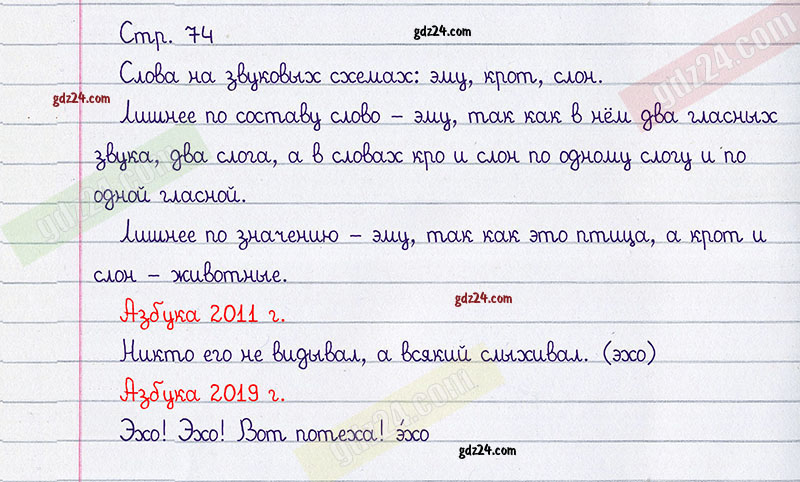 Стр. 74
gdz24.com
gdz24.com
Слова на звуковых схемах: эму, крот, слон.
gdz24.com
Лишнее по составу слово – эму, так как в нём два гласных
звука, два слога, а в словах кро и слон по одному слогу и по
gdz24.com
одной гласной.
Лишнее по значению – эму, так как это птица, а крот и
слон – животные.
gdz24.com
Азбука 2011 г.
Никто его не видывал, а всякий слыхивал. (эхо)
Азбука 2019 г.
gdz24.com
Эхо! Эхо! Вот потеха! э́хо
gdz24.com